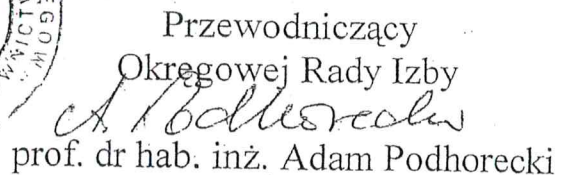 Przewodniczący
Okręgowej Rady Izby
A. Podhorecki
prof. dr hab. inż. Adam Podhorecki